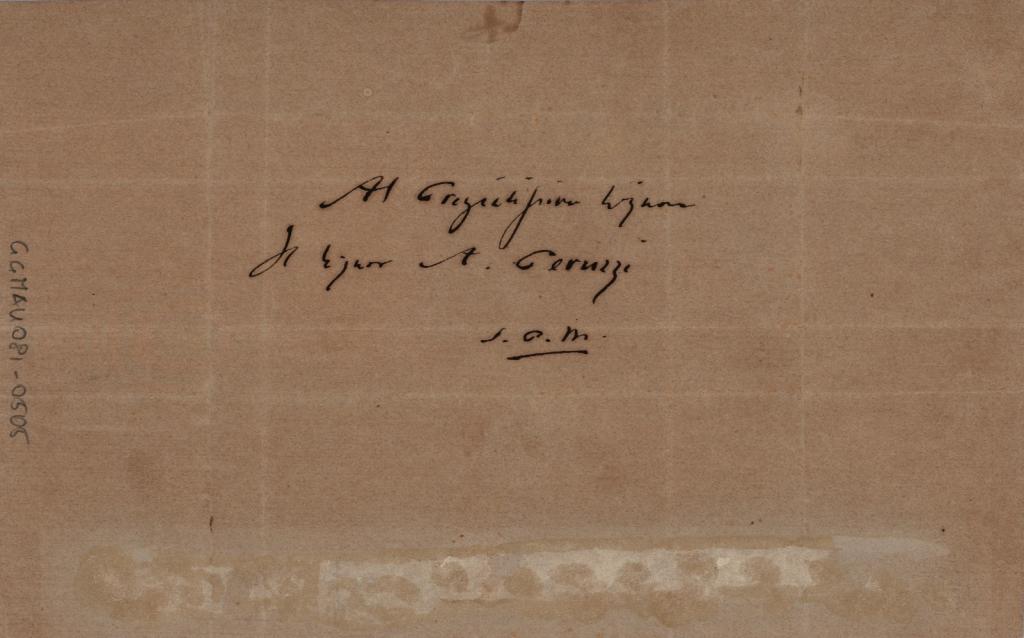 Al Pregiatissimo Signore
Il Signor A. Peruzzi
S. P. M.
GGMAU081-0505